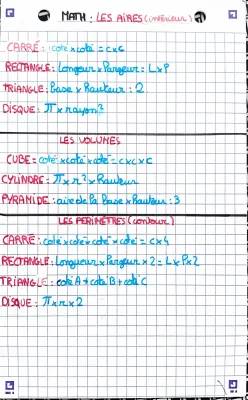 MATH : LES AIRES (intérieur)
CARRÉ : coté x coté = c x c
RECTANGLE : Longueur x largeur = L x l
TRIANGLE : Base x Hauteur : 2
DISQUE : π x rayon²
LES VOLUMES
CUBE = coté x coté x coté = c x c x c
CYLINDRE : π x r² x Hauteur
PYRAMIDE : aire de la Base x Hauteur : 3
LES PERIMÈTRES (contour)
CARRÉ : coté x coté x coté x coté = c x 4
RECTANGLE : Longueur x largeur x 2 = L x l x 2
TRIANGLE : coté A + coté B + coté C
DISQUE : π x r x 2